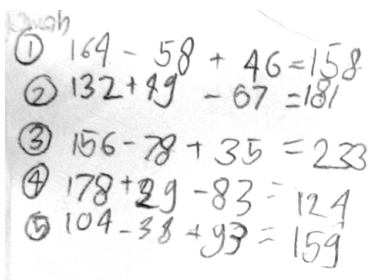 ① 164 - 58 + 46 = 158
② 132 + 49 - 67 = 181
③ 156 - 78 + 35 = 233
④ 178 + 29 - 83 = 124
⑤ 104 - 38 + 93 = 159